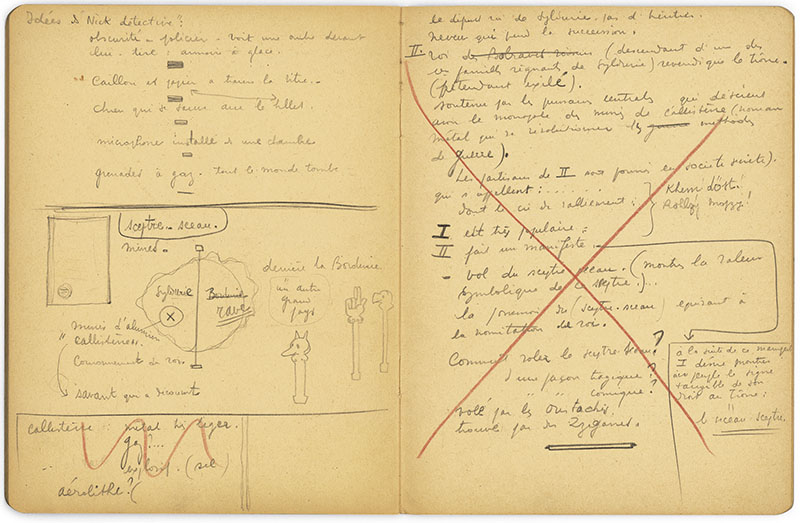 Idées de Nick détective?
obscurité - policier - voit une ombre devant
lui - tire : armoire à glace.
Caillou et papier à travers la vitre.
chien qui se sauve avec le billet.
microphone installé ds une chambre
grenades à gaz. tout le monde tombe
sceptre-sceau.
mines.
Syldurie
rave
derrière la Bordurie
un autre
grand
pays
mines d'
callistène
Couronnement du roi.
savant qui a découvert
callistène : métal très léger.
gaz?....
explosif. (sel)
aérolithe?(
le départ
neveu qui perd la succession.
II. roi (descendant d'un des
familles régnant de Syldurie) revendique le trône.
(prétendant exilé).
soutenu par les puissances centrales qui désirent
avoir le monopole des mines de callistène (nouveau
métal qui va révolutionner les méthodes
de guerre).
Les partisans de II sont formés en société secrète).
qui s'appellent : ......
dont le cri de ralliement :
I est très populaire :
II fait un manifeste.
- vol du sceptre-sceau. (montrer la valeur
symbolique de sceptre.)...
la possession du (sceptre-sceau équivaut à
la nomination de roi.
Comment voler le sceptre-sceau?
d'une façon tragique?
" " " comique?
volé par les
trouvé par des Zyganes.
à la suite de ce
I désire montrer
au peuple le signe
tangible de son
droit au trône :
le sceau-sceptre.